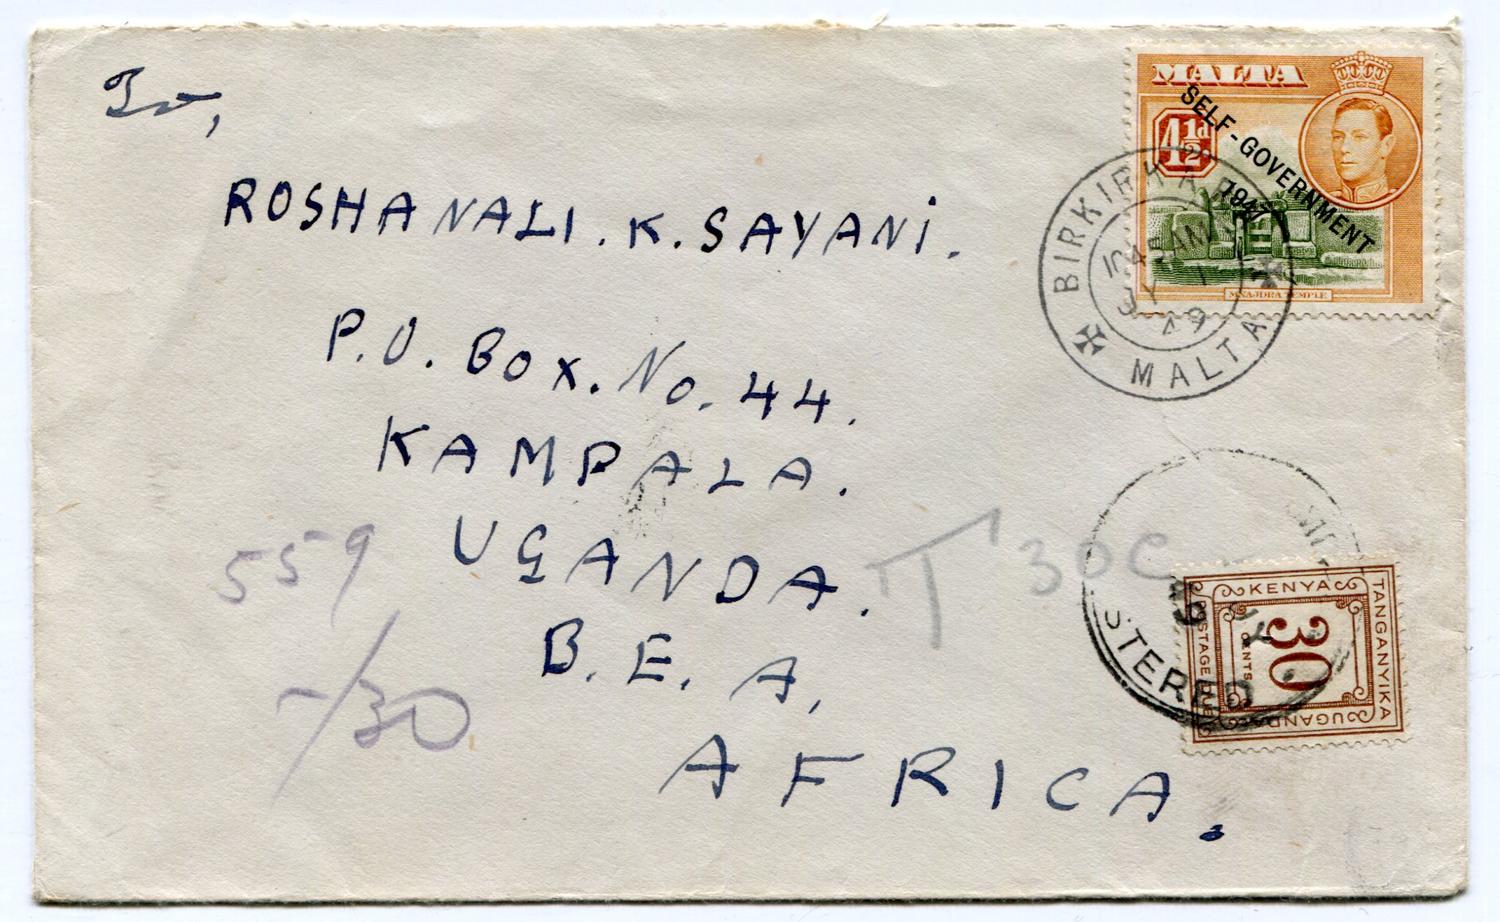 To,
ROSHANALI. K. SAYANI.
P.O. BOX. No. 44.
KAMPALA.
UGANDA.
B. E. A,
AFRICA.
559
-/30
T 30c
MALTA
4½d
SELF-GOVERNMENT
1947
MNAJDRA TEMPLE
BIRKIRKARA
MALTA
1045AM
JY 1
49
KENYA
TANGANYIKA
UGANDA
POSTAGE DUE
30
CENTS
STERED
JY